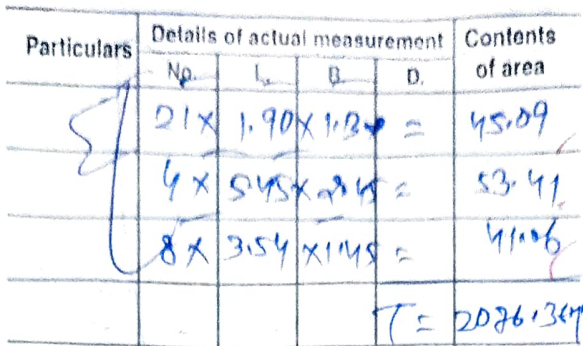 Particulars Details of actual measurement Contents of area
No. L. B. D.
21 × 1.90 × 1.13 = 45.09
4 × 5.45 × 2.45 = 53.41
8 × 3.54 × 1.45 = 41.06
T = 2086.36